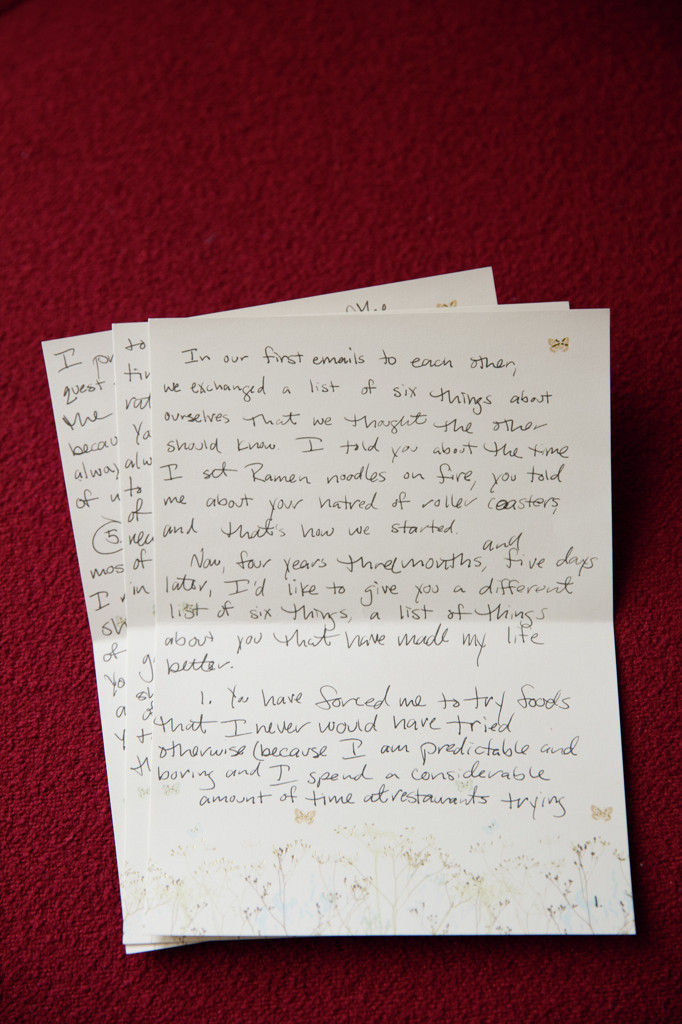 In our first emails to each other,
we exchanged a list of six things about
ourselves that we thought the other
should know. I told you about the time
I set Ramen noodles on fire, you told
me about your hatred of roller coasters,
and that's how we started.
and
Now, four years three months, five days
later, I'd like to give you a different
list of six things, a list of things
about you that have made my life
better.
1. You have forced me to try foods
that I never would have tried
otherwise (because I am predictable and
boring and I spend a considerable
amount of time at restaurants trying
1.
to
of
in
I
quest
the
becau
alway
of u
5.
mos
I
of